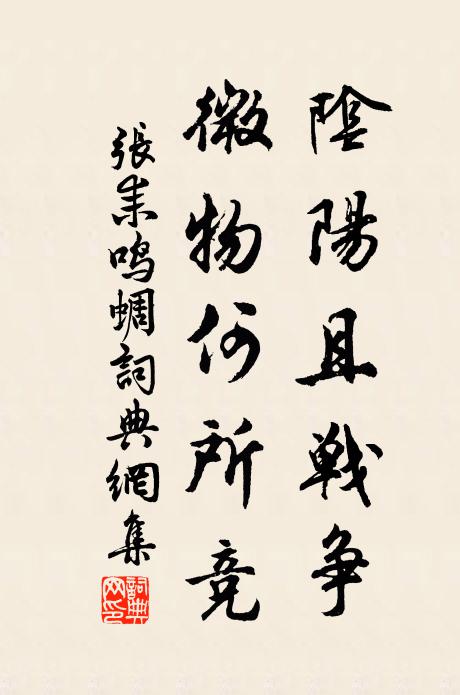 陰陽且戰爭
微物何所競
張耒鳴蜩詞典網集
詞典網印